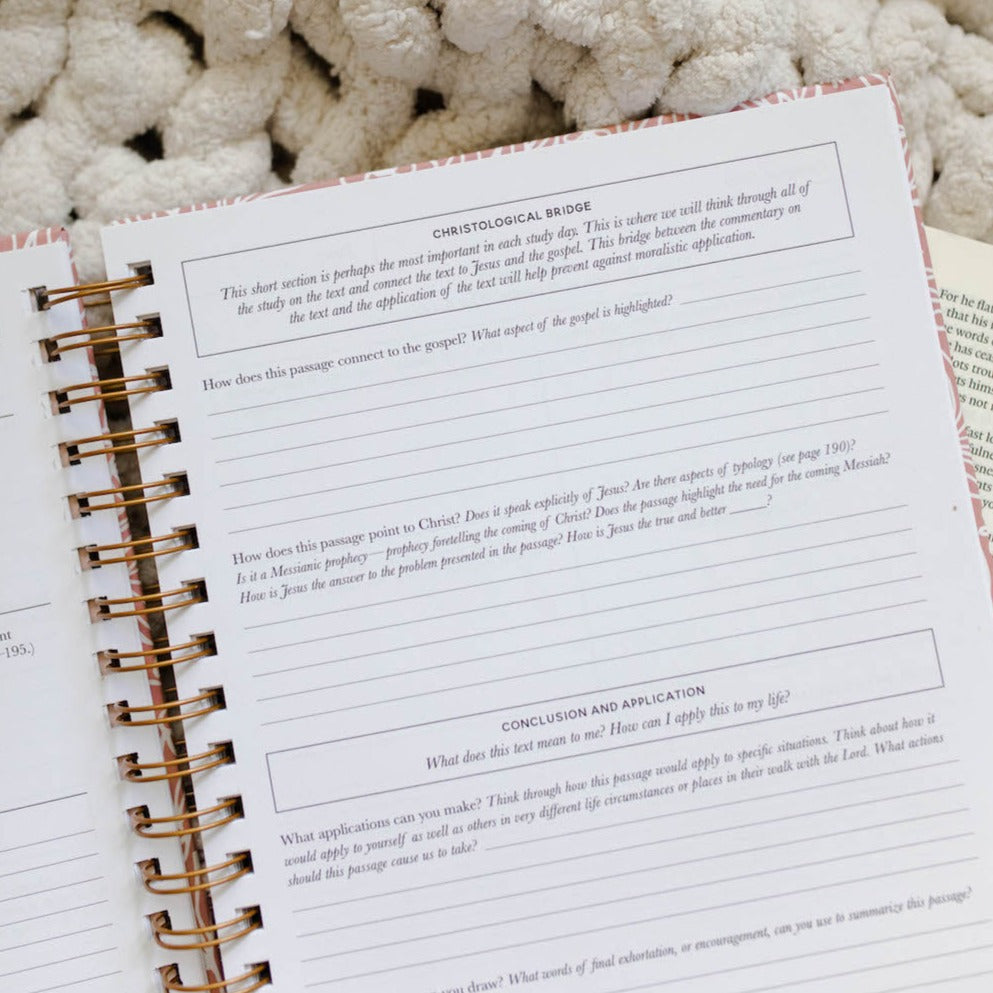 CHRISTOLOGICAL BRIDGE
This short section is perhaps the most important in each study day. This is where we will think through all of
the study on the text and connect the text to Jesus and the gospel. This bridge between the commentary on
the text and the application of the text will help prevent against moralistic application.
How does this passage connect to the gospel? What aspect of the gospel is highlighted?
How does this passage point to Christ? Does it speak explicitly of Jesus? Are there aspects of typology (see page 190)?
Is it a Messianic prophecy—prophecy foretelling the coming of Christ? Does the passage highlight the need for the coming Messiah?
How is Jesus the answer to the problem presented in the passage? How is Jesus the true and better ______?
CONCLUSION AND APPLICATION
What does this text mean to me? How can I apply this to my life?
What applications can you make? Think through how this passage would apply to specific situations. Think about how it
would apply to yourself as well as others in very different life circumstances or places in their walk with the Lord. What actions
should this passage cause us to take?
you draw? What words of final exhortation, or encouragement, can you use to summarize this passage?
-195.)
For he flat
that his
words
has cea
trou
his
not